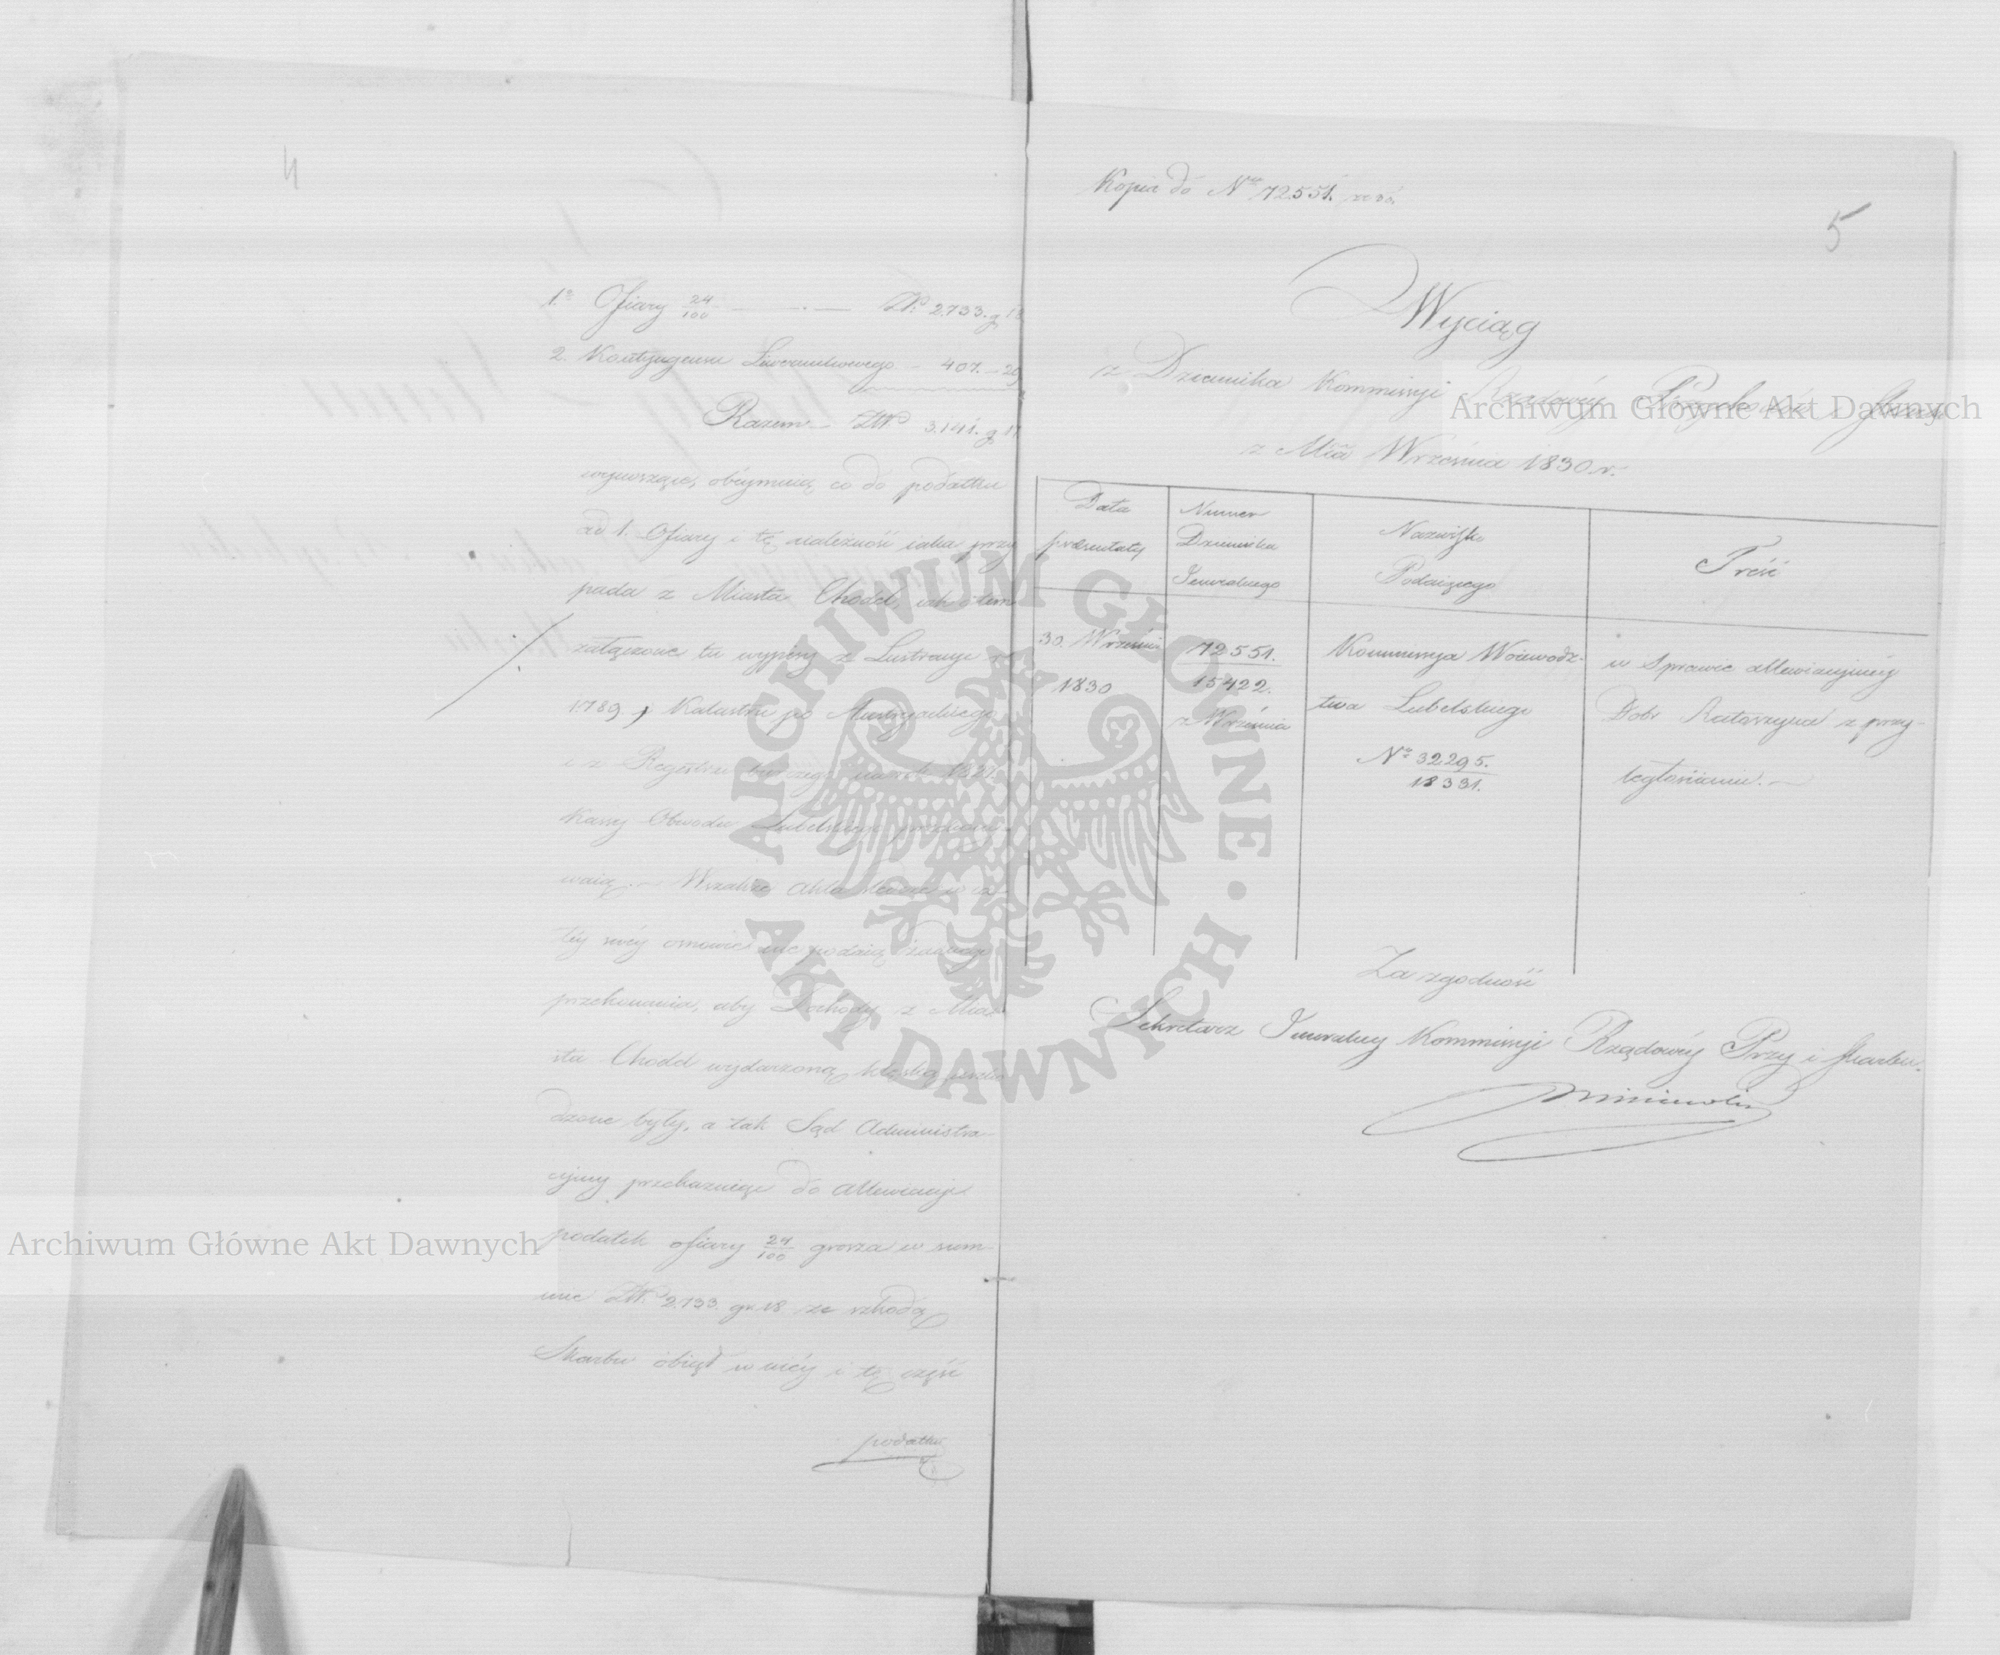 4
1o Ofiary 24/100 — . — ZłP. 2.733. g 18
2. Kontyngensu Liwerunkowego — 407. — 29
Razem — ZłP. 3.141. g 17
wynoszące, obeymują co do podatku
ad 1. Ofiary i tę należność iaka przy
pada z Miasta Chodel, iak o tem
załączone tu wypisy z Lustracyi r.
1789., Katastru po Austryackiego
i z Regestru
Kassy Obwodu Lubelskiego
. — Wszakże akta
tey swéy osnowie nie podaią żadnego
przekonania, aby Dochody z Mia-
sta Chodel wydarzoną klęską
dzone były, a tak Sąd Administra-
cyjny przekazuiąc do allewiacyi
podatek ofiary 24/100 grosza w sum-
mie ZłP. 2.733. gr. 18 ze szkodą
Skarbu objął w niéy i tę część
podatku
Kopia do No 72551.
5
Wyciąg
z Dziennika Kommissyi Rządowéy Przychodów i Skarbu
z Mca Września 1830 r.
Data prezentaty
Numer Dziennika Jeneralnego
Nazwisko Podaiącego
Treść
30. Września 1830
72551. 15422. z Września
Kommissya Woiewódz-
twa Lubelskiego
No 32295. 18331.
w Sprawie allewiacyjnéy
Dobr Ratoszyna z przy-
ległościami. —
Za zgodność
Sekretarz Jeneralny Kommissyi Rządowéy Przy i Skarbu.
Archiwum Główne Akt Dawnych
Archiwum Główne Akt Dawnych
ARCHIWUM GŁÓWNE AKT DAWNYCH